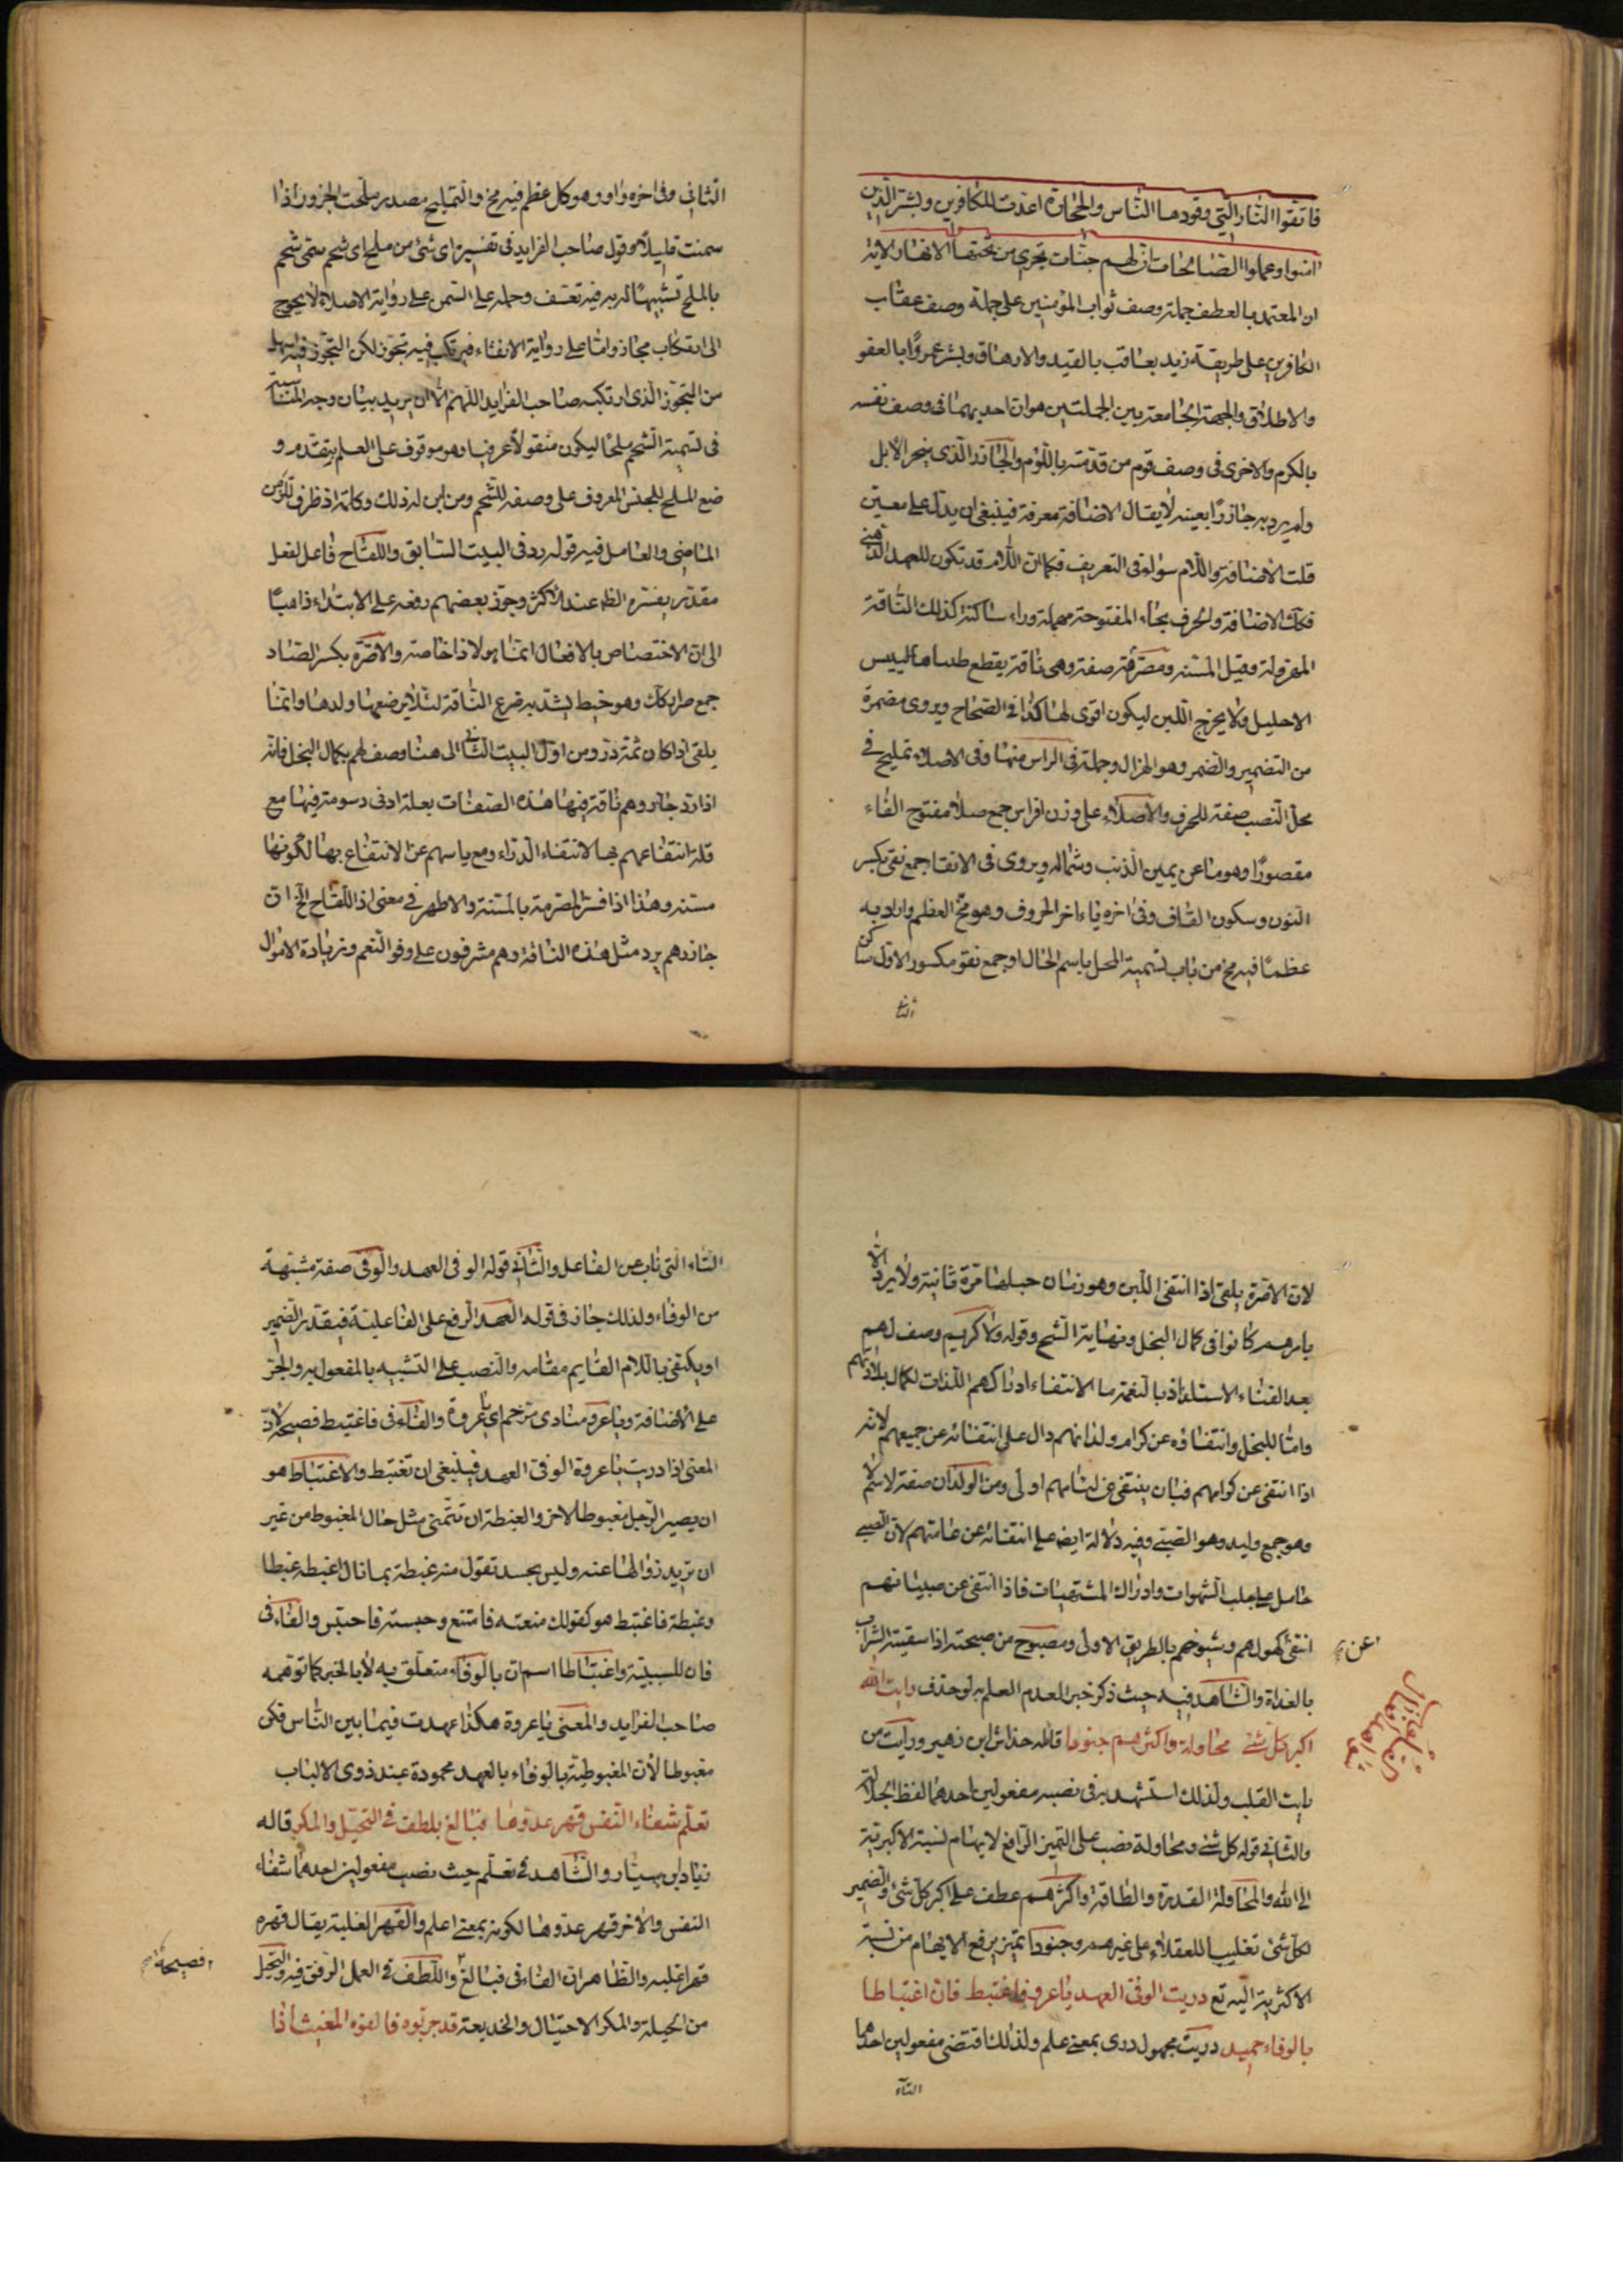 فاتقوا النار التي وقودها الناس والحجارة اعدت للكافرين وبشر الذين
امنوا وعملوا الصالحات ان لهم جنات تجري من تحتها الانهار لانه
ان المعتمد بالعطف جملة وصف ثواب المؤمنين على جملة وصف عقاب
الكافرين على طريقة زيد يعاقب بالقيد والارهاق وبشر عمروًا بالعفو
والاطلاق والجهة الجامعة بين الجملتين هو ان احديهما في وصف نفسه
بالكرم والاخرى في وصف قوم من قدمته باللؤم والجازر الذي ينحر الابل
ولم يرد به جازرًا بعينه لا يقال الاضافة معرفة فينبغي ان يدل على معين
قلت الاضافة واللام سواء في التعريف فكما ان اللام قد تكون للعهد الذهني
فكذا الاضافة والحرف بحاء المفتوحة مهملة وراء ساكنة كذلك الناقة
المهزولة وقيل المسنة ومصرمة صفة وهي ناقة يقطع طبياها لييبس
الاحليل ولا يخرج اللبن ليكون اقوى لها كذا في الصحاح ويروى مضمرة
من التضمير والضمر وهو الهزال وجملة في الراس منها وفي الاصلاء تمليح في
محل النصب صفة للحرف والاصلاء على وزن افراس جمع صلا مفتوح الفاء
مقصورًا وهو ما عن يمين الذنب وشماله ويروى في الانقا جمع نقي بكسر
النون وسكون القاف وفي اخره ياء اخر الحروف وهو مخ العظم واراد به
عظمًا فيه مخ من باب تسمية المحل باسم الحال او جمع نقو مكسور الاول ساكن
الثاني
الثاني وفي اخره واو وهو كل عظم فيه مخ والتمليح مصدر ملحت الجزور اذا
سمنت قليلًا وقول صاحب الفرايد في تفسيره اي شئ من ملح اي شحم سمي شحم
بالملح تشبيهًا له به فيه تعسف وحمله على السمن على رواية الاصلاء لا يحوج
الى ارتكاب مجاز واما على رواية الانقاء فيرتكب فيه تجوز لكن التجوز فيه اسهل
من التجوز الذي ارتكبه صاحب الفرايد اللهم الا ان يريد بيان وجه المناسبة
في تسمية الشحم ملحًا ليكون منقولًا عرفيا وهو موقوف على العلم بتقدم و
ضع الملح للجنس المعروف على وصفه للشحم ومن اين له ذلك وكلمة اذ ظرف للزمن
الماضي والعامل فيه قوله رد في البيت السابق واللقاح فاعل لفعل
مقدر يفسره الظ عند الاكثر وجوز بعضهم رفعه على الابتداء ذاهبًا
الى ان الاختصاص بالافعال انما هو لاذا خاصة والاصرة بكسر الصاد
جمع صرار ككتاب وهو خيط يشد به ضرع الناقة لئلا يرضعها ولدها وانما
يلقى اذا كان ثمة در ومن اول البيت الثاني الى هنا وصف لهم بكمال البخل فانه
اذا رد جازرهم ناقة فيها هذه الصفات بعلة ادنى دسومة فيها مع
قلة انتفاعهم بها لانتفاء الدر او مع ياسهم عن الانتفاع بها لكونها
مسنة وهذا اذا فسر المصرمة بالمسنة والاظهر في معنى اذ اللقاح الخ ان
جازرهم يرد مثل هذه الناقة وهم مشرفون على وفو النعم وزيادة الاموال
لان الاصرة يلقى اذا انتفى اللبن وهو زمان حبلها مرة ثانية ولا يرد الا
يامرهم كانوا في كمال البخل ونهاية الشح وقوله ولا كريم وصف لهم
بعد القناء الاستلذاذ بالنعمة ما لانتفاء ادراكهم اللذات لكمال بلادتهم
واما للبخل وانتفاؤه عن كرام ولدانهم دال على انتفائه عن جميعهم لانه
اذا انتفى عن كرامهم فبان ينتفي عن لئامهم اولى ومن الولدان صفة لاسم لا
وهو جمع وليد وهو الصبي وفيه دلالة ايض على انتفائه عن عامتهم لان الصبي
حامل على جلب الشهوات وادراك المشتهيات فاذا انتفى عن صبيانهم
انتفى كهولهم وشيوخهم بالطريق الاولى ومصبوح من صبحته اذا سقيته الشراب
عن
بالغداة والشاهد فيه حيث ذكر خبر لعدم العلم به لو حذف رايت الله
اكبر كل شئ محاولة واكثرهم جنودا قاله خداش ابن زهير ورايت من
رايت القلب ولذلك استشهد به في نصبه مفعولين احدهما لفظ الجلالة
والثاني قوله كل شئ ومحاولة نصب على التميز الرافع لابهام نسبة الاكبرية
الى الله والمحاولة القدرة والطاقة واكثرهم عطف على اكبر كل شئ والضمير
لكل شئ تغليبا للعقلاء على غيرهم وجنودا تميز يرفع الابهام من نسبة
الاكثرية اليه تع دريت الوفي العهد ياعرو فاغتبط فان اغتباطا
بالوفاء حميد دريت مجهول درى بمعنى علم ولذلك اقتضى مفعولين احدهما
التاء
التاء التي ناب عن الفاعل والثاني قوله الوفي العهد والوفي صفة مشبهة
من الوفاء ولذلك جاز في قوله العهد الرفع على الفاعلية فيقدر الضمير
او يكتفي باللام القايم مقامه والنصب على التشبيه بالمفعول به والجر
على الاضافة وياعرو منادى مرخم اي ياعروة والفاء في فاغتبط فصيحة لان
المعنى اذا دريت ياعروة الوفي العهد فينبغي ان تغتبط والاغتباط هو
ان يصير الرجل مغبوطا لاخر والغبطة ان تتمنى مثل حال المغبوط من غير
ان تريد زوالها عنه وليس بحسد تقول منه غبطة بما نال اغبطه غبطا
وغبطة فاغتبط هو كقولك منعته فامتنع وحبسته فاحتبس والفاء في
فان للسببية واغتباطا اسم ان بالوفاء متعلق به لا بالخبر كما توهمه
صاحب الفرايد والمعنى ياعروة هكذا عهدت فيما بين الناس فكن
مغبوطا لان المغبوطية بالوفاء بالعهد محمودة عند ذوي الالباب
تعلم شفاء النفس قهر عدوها فبالغ بلطف في التحيل والمكر قاله
زياد بن سيار والشاهد في تعلم حيث نصب مفعولين احدهما شفاء
النفس والاخر قهر عدوها لكونه بمعنى اعلم والقهر الغلبة يقال قهره
قهرا غلبه والظاهر ان الفاء في فبالغ واللطف في العمل الرفق فيه والتحيل
فصيحة
من الحيلة والمكر الاحتيال والخديعة قد جربوه فالفوه المغيث اذا